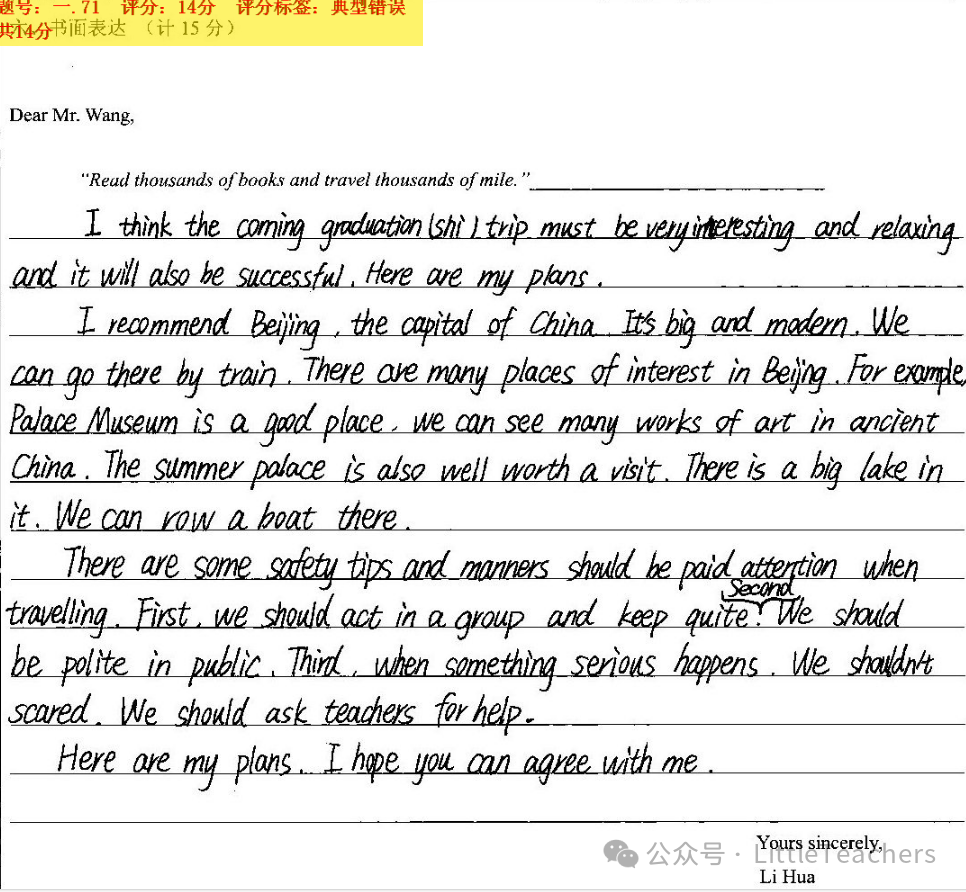 题号：一.71 评分：14分 评分标签：典型错误
共14分
书面表达 （计 15 分）
Dear Mr. Wang,
"Read thousands of books and travel thousands of mile."
I think the coming graduation (shi) trip must be very interesting and relaxing
and it will also be successful. Here are my plans.
I recommend Beijing, the capital of China. It's big and modern. We
can go there by train. There are many places of interest in Beijing. For example,
Palace Museum is a good place. we can see many works of art in ancient
China. The summer palace is also well worth a visit. There is a big lake in
it. We can row a boat there.
There are some safety tips and manners should be paid attention when
Second
travelling. First, we should act in a group and keep quite. We should
be polite in public. Third, when something serious happens. We shouldn't
scared. We should ask teachers for help.
Here are my plans. I hope you can agree with me.
Yours sincerely,
公众号 · LittleTeachers
Li Hua